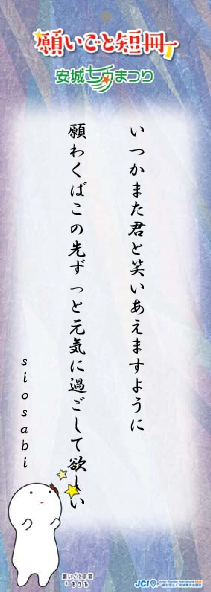 願いごと短冊
安城七夕まつり
いつかまた君と笑いあえますように
願わくばこの先ずっと元気に過ごして欲しい
siosabi
願いごと短冊
JCI